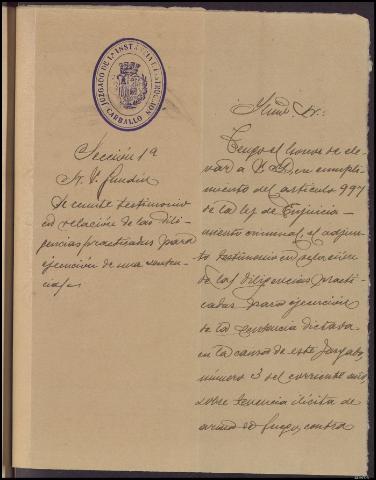 JUZGADO DE 1ª INSTANCIA E INSTRUCCIÓN
CARBALLO
Sección 1ª
Se remite testimonio
en relación de las dili-
gencias practicadas para
ejecución de una senten-
cia
Iltmo. Sr.:
Tengo el honor de ele-
var a V. I., en cumpli-
miento del artículo 991
de la ley de Enjuicia-
miento criminal, el adjun-
to testimonio en relación
de las diligencias practi-
cadas para ejecución
de la sentencia dictada
en la causa de este Juzgado,
número 3 del corriente año,
sobre tenencia ilícita de
arma de fuego, contra